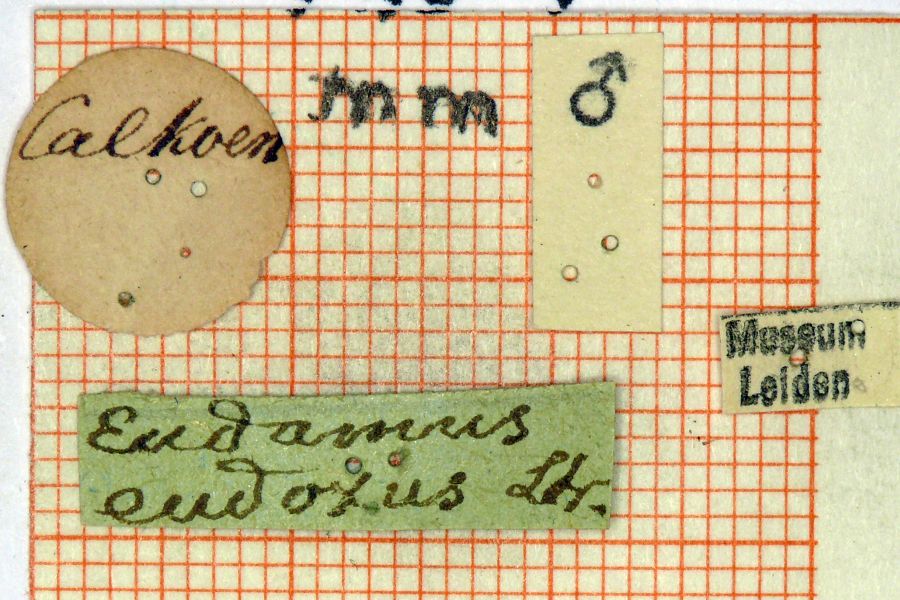 Calkoen
mm
♂
Museum
Leiden
Eudamus
eudoxus Ltr.